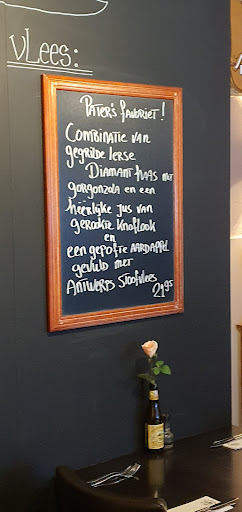 VLees:
PATER'S FAVORIET!
COMBINATIE VAN
gegrilde Ierse
DIAMANTHAAS MET
gorgonzola en een
heerlijke jus van
gerookte knoflook
en
een gepofte AARDAPPEL
gevuld met
ANTWERPS Stoofvlees
21,95